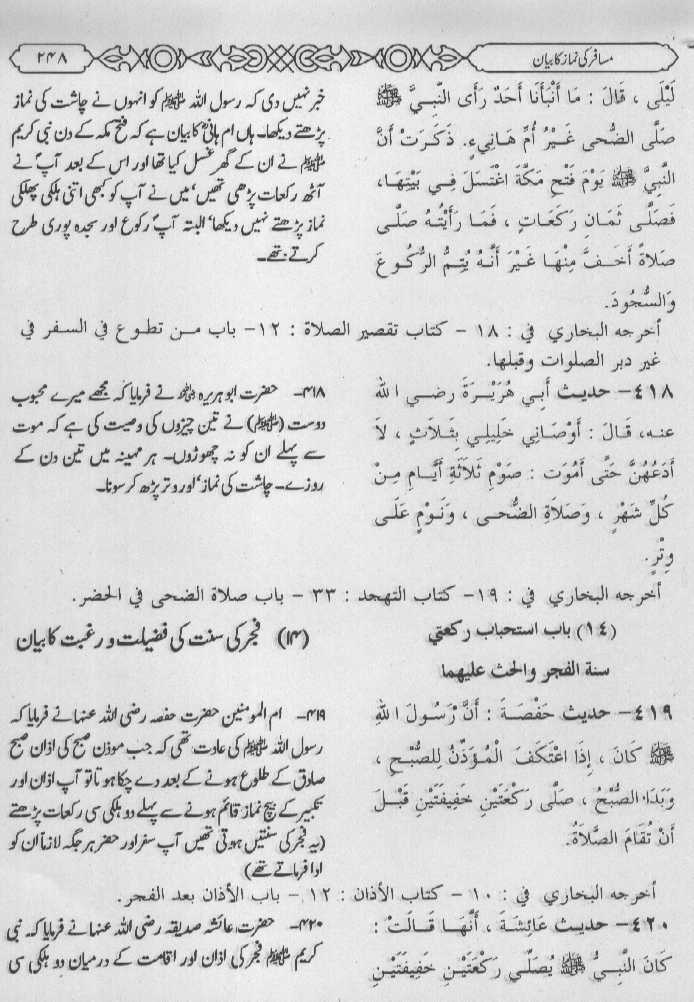 مسافر کی نماز کا بیان
۲۴۸
لَيْلَى ، قَالَ : مَا أَنْبَأَنَا أَحَدٌ رَأَى النَّبِيَّ ﷺ
صَلَّى الضُّحى غَيْرُ أُمِّ هَانِيءٍ. ذَكَرَتْ أَنَّ
النَّبِيَّ ﷺ يَوْمَ فَتْحِ مَكَّةَ اغْتَسَلَ فِي بَيْتِهَا،
فَصَلَّى ثَمَانِ رَكَعَاتٍ ، فَمَا رَأَيْتُهُ صَلَّى
صَلاَةً أَخَفَّ مِنْهَا غَيْرَ أَنَّهُ يُتِمُّ الرُّكُوعَ
وَالسُّجُودَ.
خبر نہیں دی کہ رسول اللہ ﷺ کو انہوں نے چاشت کی نماز
پڑھتے دیکھا۔ ہاں ام ہانیؓ کا بیان ہے کہ فتح مکہ کے دن نبی کریم
ﷺ نے ان کے گھر غسل کیا تھا اور اس کے بعد آپؐ نے
آٹھ رکعات پڑھی تھیں‘ میں نے آپ کو کبھی اتنی ہلکی پھلکی
نماز پڑھتے نہیں دیکھا‘ البتہ آپؐ رکوع اور سجدہ پوری طرح
کرتے تھے۔
أخرجه البخاري في : ١٨ - كتاب تقصير الصلاة : ١٢- باب من تطوع في السفر في
غير دبر الصلوات وقبلها.
٤١٨- حديث أَبِي هُرَيْرَةَ رضي الله
عنه، قَالَ : أَوْصَانِي خَلِيلِي بِثَلاَثٍ ، لاَ
أَدَعُهُنَّ حَتَّى أَمُوتَ : صَوْمِ ثَلاَثَةِ أَيَّامٍ مِنْ
كُلِّ شَهْرٍ ، وَصَلاَةِ الضُّحى ، وَنَوْمٍ عَلَى
وِتْرٍ.
۴۱۸۔ حضرت ابو ہریرہ ؓ نے فرمایا کہ مجھے میرے محبوب
دوست (ﷺ) نے تین چیزوں کی وصیت کی ہے کہ موت
سے پہلے ان کو نہ چھوڑوں۔ ہر مہینہ میں تین دن کے
روزے۔ چاشت کی نماز‘ اور وتر پڑھ کر سونا۔
أخرجه البخاري في : ١٩- كتاب التهجد : ٣٣ - باب صلاة الضحى في الحضر.
(١٤) باب استحباب ركعتي
سنة الفجر والحث عليهما
(۱۴) فجر کی سنت کی فضیلت و رغبت کا بیان
٤١٩- حديث حَفْصَةَ : أَنَّ رَسُولَ اللهِ
ﷺ كَانَ ، إِذَا اعْتَكَفَ الْمُؤَذِّنُ لِلصُّبْحِ ،
وَبَدَا الصُّبْحُ ، صَلَّى رَكْعَتَيْنِ خَفِيفَتَيْنِ قَبْلَ
أَنْ تُقَامَ الصَّلاَةُ.
۴۱۹۔ ام المومنین حضرت حفصہ رضی اللہ عنہا نے فرمایا کہ
رسول اللہ ﷺ کی عادت تھی کہ جب موذن صبح کی اذان صبح
صادق کے طلوع ہونے کے بعد دے چکا ہوتا تو آپ اذان اور
تکبیر کے بیچ نماز قائم ہونے سے پہلے دو ہلکی سی رکعات پڑھتے
(یہ فجر کی سنتیں ہوتی تھیں آپ سفر اور حضر ہر جگہ لازماً ان کو
ادا فرماتے تھے)
أخرجه البخاري في : ١٠ - كتاب الأذان : ١٢ - باب الأذان بعد الفجر.
٤٢٠- حديث عَائِشَةَ ، أَنَّهَا قَالَتْ :
كَانَ النَّبِيُّ ﷺ يُصَلِّي رَكْعَتَيْنِ خَفِيفَتَيْنِ
۴۲۰۔ حضرت عائشہ صدیقہ رضی اللہ عنہا نے فرمایا کہ نبی
کریم ﷺ فجر کی اذان اور اقامت کے درمیان دو ہلکی سی